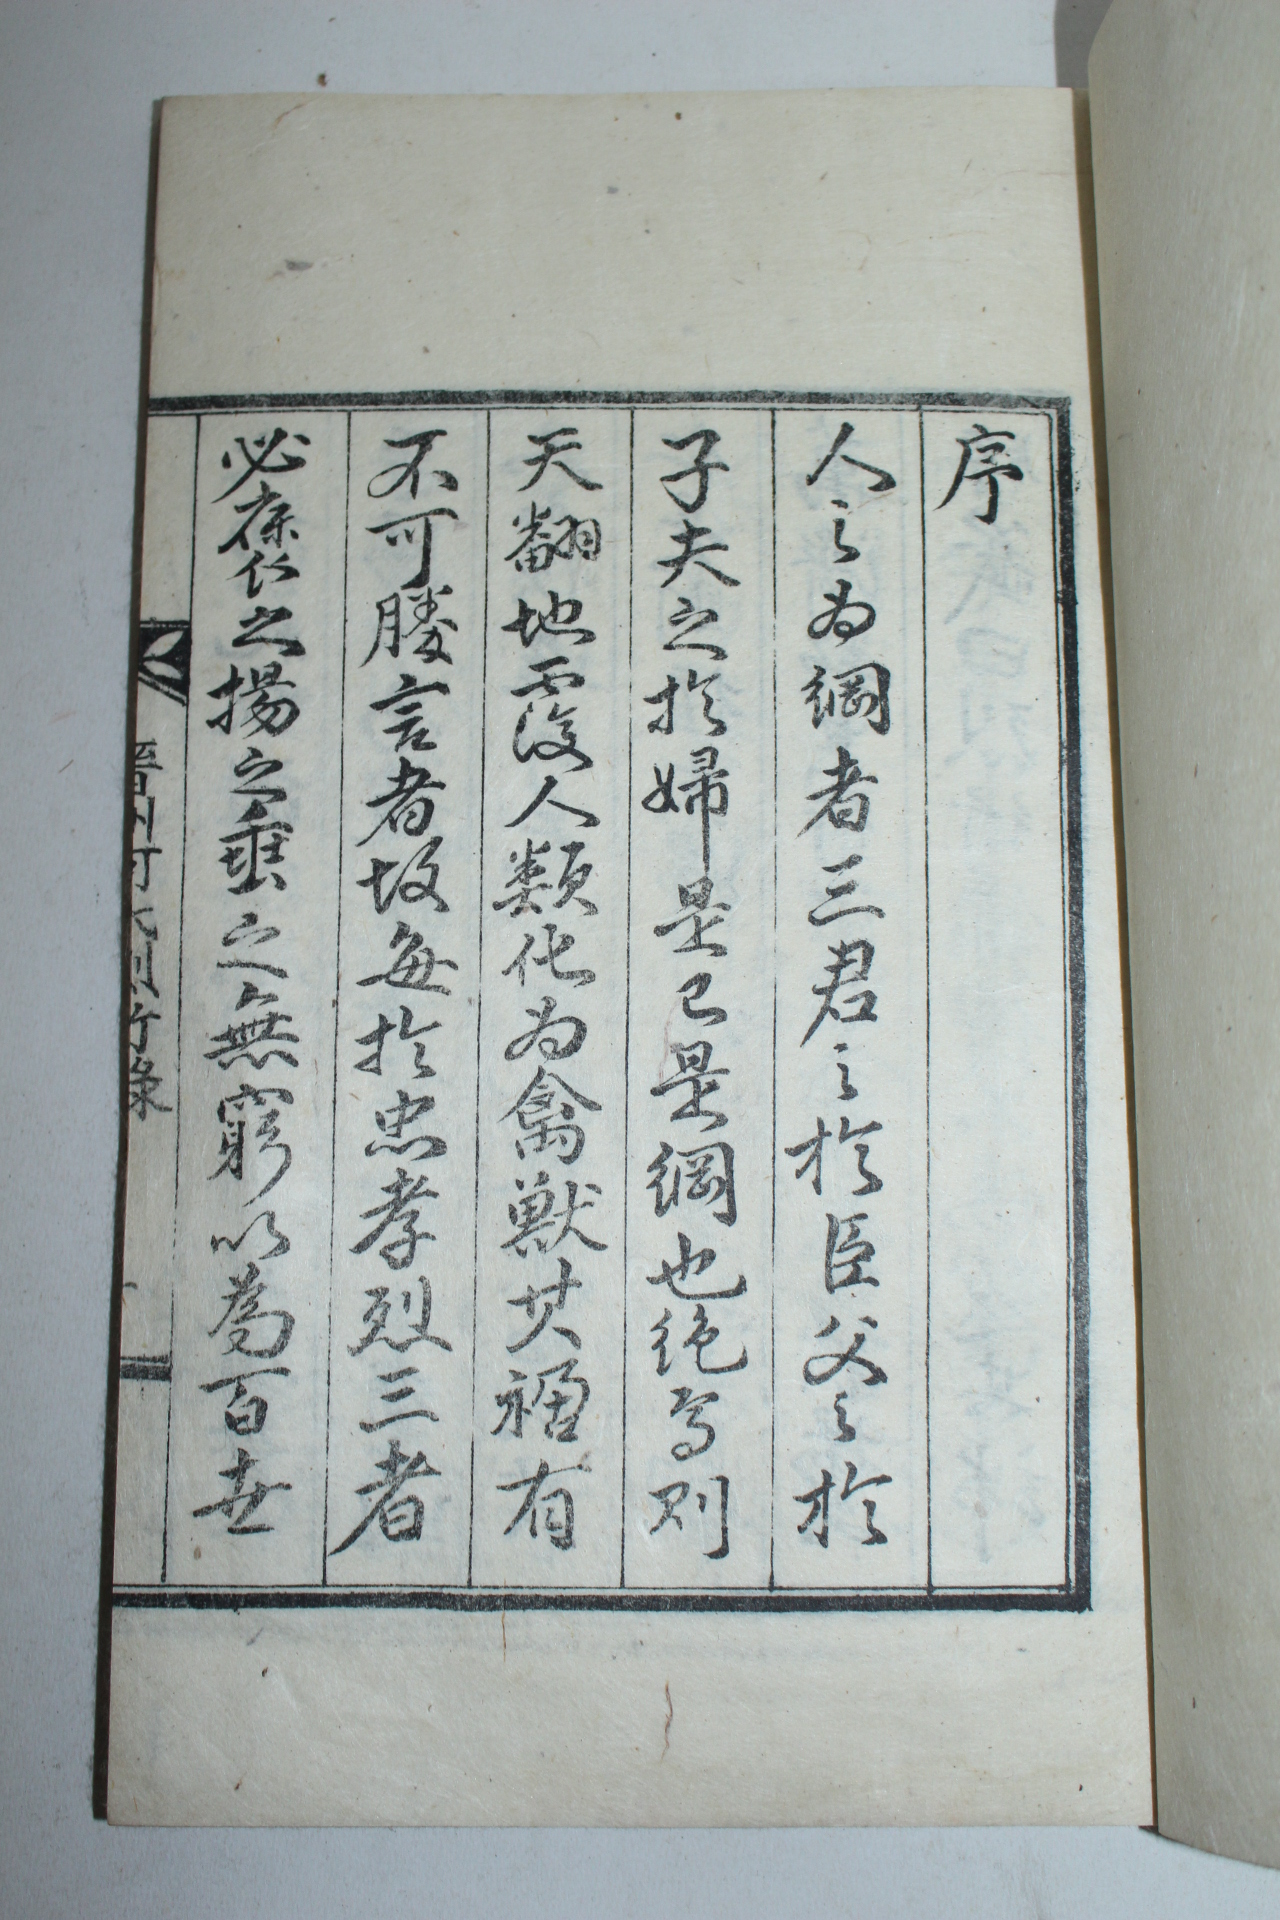 序
人之為綱者三君之於臣父之於
子夫之於婦是已是綱也絶焉則
天翻地覆人類化為禽獸其禍有
不可勝言者故每於忠孝烈三者
必褒之揚之垂之無窮以為百世
晉州 行錄